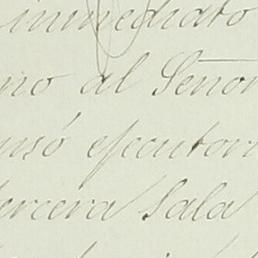 inmediato
no al Señor
usó ejecutori
tercera Sala